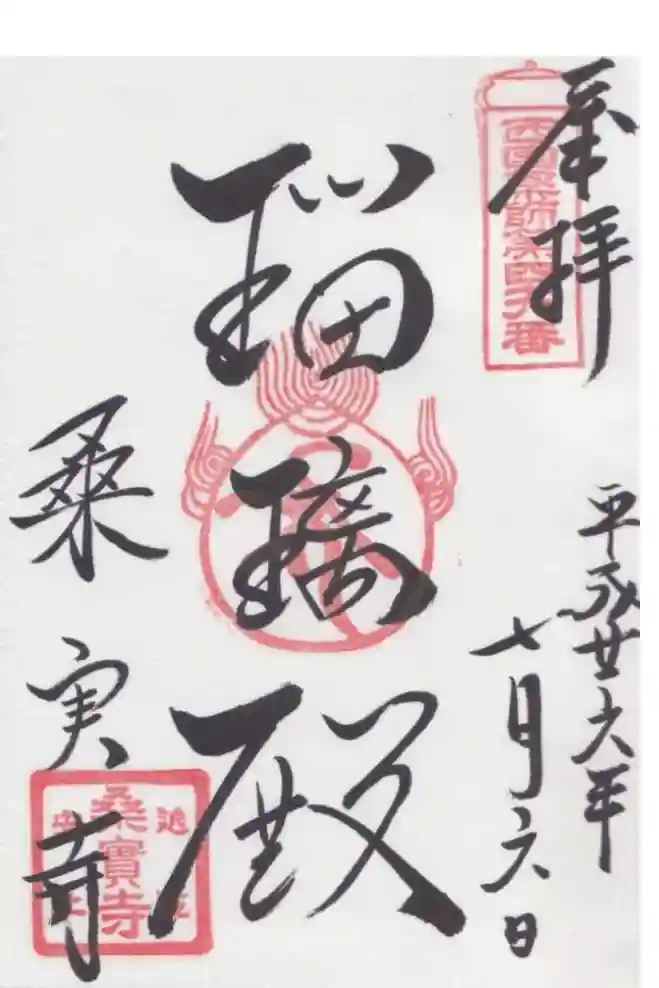 奉拝
西国薬師第四六番
平成廿六年
七月六日
瑠璃殿
桑実寺
桑實寺